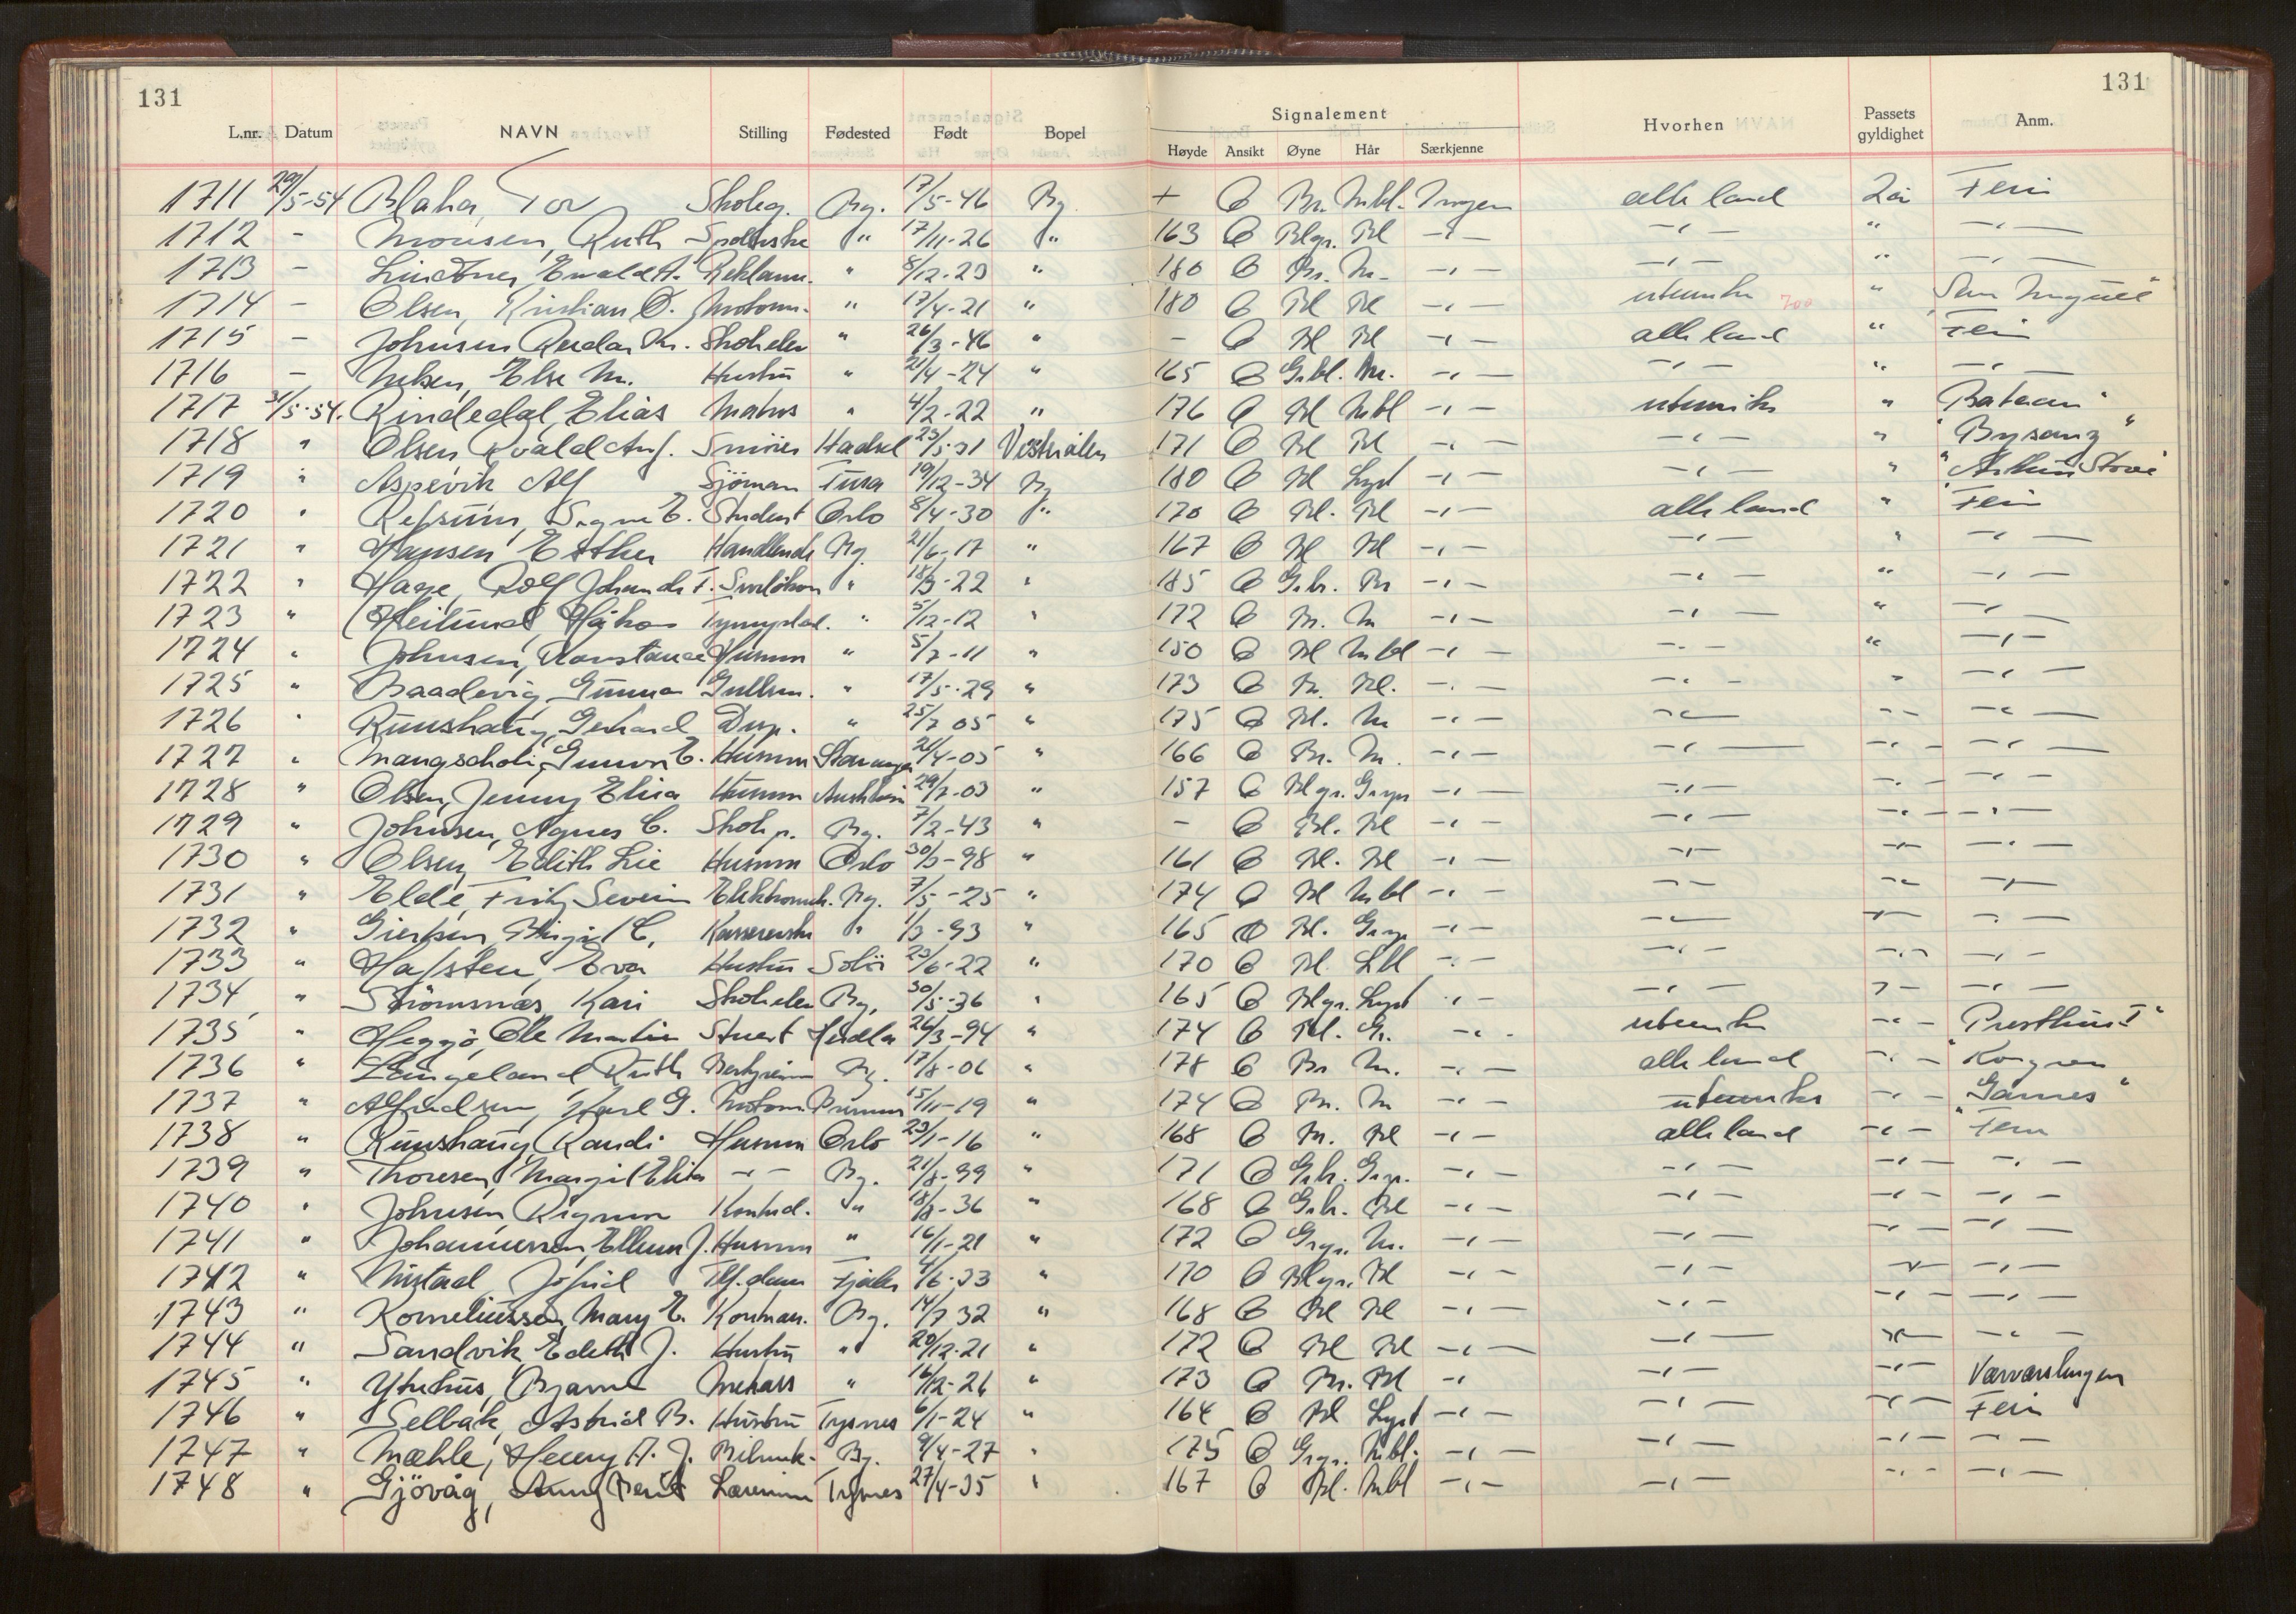 131 131
L.nr. Datum NAVN Stilling Fødested Født Bopel Signalement Høyde Ansikt Øyne Hår Særkjenne Hvorhen Passets gyldighet Anm.
1711 29/5-54 Blaha, Tor Skoleg. Bg. 17/5-46 Bg + O Br. Mbl. Ingen alle land 2 år Ferie
1712 - Monsen, Ruth " 17/11-26 " 163 O Blgr. Bl -"- -"- " -"-
1713 - Lindtner, Ewald A. Reklame. " 8/12-23 " 180 O Br. M. -"- -"- " -"-
1714 - Olsen, Kristian O. Motorm. " 17/4-21 " 180 O Bl Bl -"- utenriks 700 " San Miguel"
1715 - Johnsen Reidar Kr. Skoleelev " 26/3-46 " - O Bl Bl -"- alle land " Ferie
1716 - Nilsen, Else M. Hustru " 21/4-24 " 165 O Grbl. M. -"- -"- " -"-
1717 31/5-54. Rindedal, Elias Matros " 4/2-22 " 176 O Bl Mbl -"- utenriks " Bataan"
1718 " Olsen, Roald Smører Hadsel 23/5-31 Vesterålen 171 O Bl Bl -"- -"- " "Bysanz"
1719 " Aspevik Alf Sjömann 19/12-34 Bg 180 O Bl Lyst -"- -"- " "Arthur Stove"
1720 " Refsum, Signe E. Student Oslo 8/4-30 " 170 O Bl. Bl -"- alle land " Ferie
1721 " Hansen Esther Handlende Bg. 21/6-17 " 167 O Bl Bl -"- -"- " -"-
1722 " Hage, Rolf T. " 18/3-22 " 185 O Gr.br. Br -"- -"- " -"-
1723 " " 5/12-12 " 172 O Br. M -"- -"- " -"-
1724 " Johnsen, Konstance Husmor " 5/7-11 " 150 O Bl Mbl -"- -"- " -"-
1725 " Baadevig Gunnar Gullsm. " 17/5-29 " 173 O Br. Bl. -"- -"- " -"-
1726 " Runshaug, Gerhard Disp. " 25/7 05 " 175 O Bl. M -"- -"- -"- -"-
1727 " Mangschou, Gunvor E. Husmor Stavanger 21/4-05 " 166 O Br. M. -"- -"- -"- -"-
1728 " Olsen, Jenny Elisa Husmor 29/7-03 " 157 O Blgr. Grspr -"- -"- -"- -"-
1729 " Johnsen, Agnes C. Skolep. Bg. 7/2-43 " - O Bl. Bl -"- -"- -"- -"-
1730 " Olsen, Edith Lie Husmor Oslo 30/3-98 " 161 O Bl. Bl -"- -"- -"- -"-
1731 " Elde, Fritz Severin Elektromek. Bg. 7/5-25 " 174 O Bl Mbl -"- -"- -"- -"-
1732 " Giertsen, Birgit C. Kassererske " 1/3-93 " 165 O Bl. Grspr -"- -"- -"- -"-
1733 " Hafsten, Eva Hustru Solör 23/6-22 " 170 O Bl. Lbl -"- -"- -"- -"-
1734 " Strömsnæs, Kari Skoleelev Bg, 30/5-36 " 165 O Blgr. Lyst -"- -"- -"- -"-
1735 " Heggö, Ole Martin Stuert Herdla 26/3-94 " 174 O Bl. Gr. -"- utenriks -"- Presthus I"
1736 " Langeland Ruth Bg. 17/8-06 " 178 O Br M. -"- alle land -"- "Kongren
1737 " Alfredsen, Karl G. Motorm. 15/11-19 " 174 O Br. M -"- utenriks -"- Garnes"
1738 " Runshaug, Randi Husmor Oslo 23/1-16 " 168 O Br. Bl -"- alle land -"- Ferie
1739 " Thoresen, Margit Elisa -"- Bg. 21/8-99 " 171 O Gr.br. Grspr. -"- -"- -"- -"-
1740 " Johnsen, Rigmor Kontord. " 18/8-36 " 168 O Gr.br. Bl -"- -"- -"- -"-
1741 " Johannessen, Ellinor J. Husmor " 16/1-21 " 172 O Grgr. M. -"- -"- -"- -"-
1742 " Mistad, Jofrid Tlf.dame Fjaler 4/6-33 " 170 O Blgr. Bl -"- -"- -"- -"-
1743 " Korneliussen, Mary E. Kontorass. Bg. 14/7 32 " 168 O Bl Bl -"- -"- -"- -"-
1744 " Sandvik, Edith J. Hustru " 20/12-21 " 172 O Bl Bl -"- -"- -"- -"-
1745 " Ytrehus, Bjarne " 16/12-26 " 173 O Br. Bl -"- -"- -"- Værvarslingen
1746 " Selbak, Astrid B. Hustru Tysnes 6/1-24 " 164 O Bl Lyst -"- -"- -"- Ferie
1747 " Mæhle, Henry A. J. Bilmek. Bg. 9/4-27 " 175 O Grgr. Mbl. -"- -"- -"- -"-
1748 " Gjövåg, Anny Berit Lærerinne Tysnes 27/4-35 " 167 O Bl. Mbl -"- -"- -"- -"-